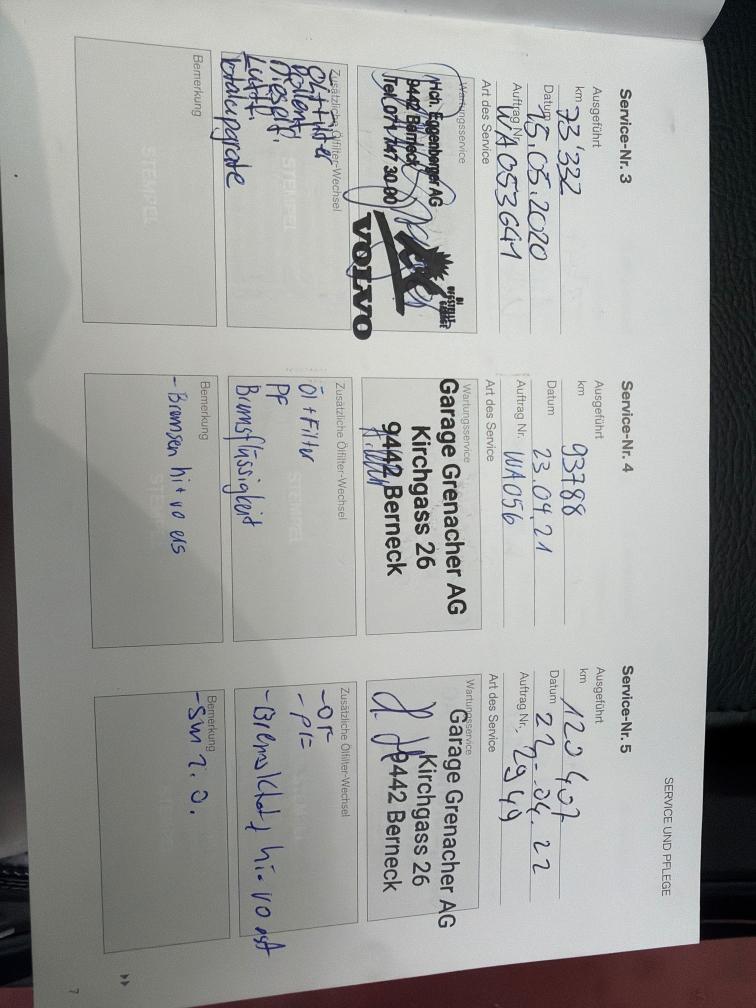 SERVICE UND PFLEGE
Service-Nr. 3
Ausgeführt
km 73'332
Datum 15.05.2020
Auftrag Nr. WA053641
Art des Service
Wartungsservice
Hch. Eggenberger AG
9442 Berneck
Tel. 071 747 30 00
VOLVO
Zusätzliche Ölfilter-Wechsel
Öl + Filter
Pollenf.
Dieself.
Luftf.
Totalupgrade
STEMPEL
Bemerkung
STEMPEL
Service-Nr. 4
Ausgeführt
km 93788
Datum 23.04.21
Auftrag Nr. WA056
Art des Service
Wartungsservice
Garage Grenacher AG
Kirchgass 26
9442 Berneck
Zusätzliche Ölfilter-Wechsel
Öl + Filter
PF
Bremsflüssigkeit
Bemerkung
- Bremsen hi + vo
Service-Nr. 5
Ausgeführt
km 120 407
Datum 22.04.22
Auftrag Nr. 2949
Art des Service
Wartungsservice
Garage Grenacher AG
Kirchgass 26
9442 Berneck
Zusätzliche Ölfilter-Wechsel
- PF
hi + vo
Bemerkung
i.O.
7